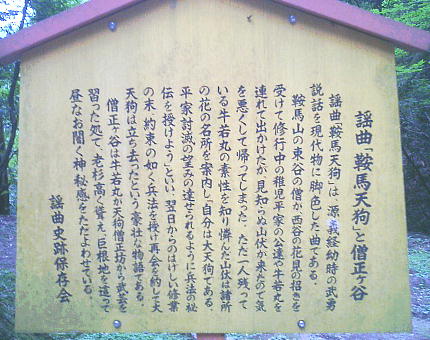 謡曲「鞍馬天狗」と僧正ヶ谷
謡曲「鞍馬天狗」は、源義経幼時の武勇
説話を現代物に脚色した曲である。
鞍馬山の東谷の僧が西谷の花見の招きを
受けて、修行中の稚児平家の公達や牛若丸を
連れて出かけたが、見知らぬ山伏が来たので気
を悪くして帰ってしまった。ただ一人残って
いる牛若丸の素性を知り憐んだ山伏は諸所
の花の名所を案内し「自分は大天狗である。
平家討滅の望みの達せられるように兵法の秘
伝を授けよう」といい、翌日からのはげしい修業
の末、約束の如く兵法を授け再会を約して大
天狗は立ち去ったという豪壮な物語である。
僧正ヶ谷は牛若丸が天狗僧正坊から武芸を
習った処で、老杉高く聳え、巨根地を這って
昼なお闇く神秘感をただよわせている。
謡曲史跡保存会